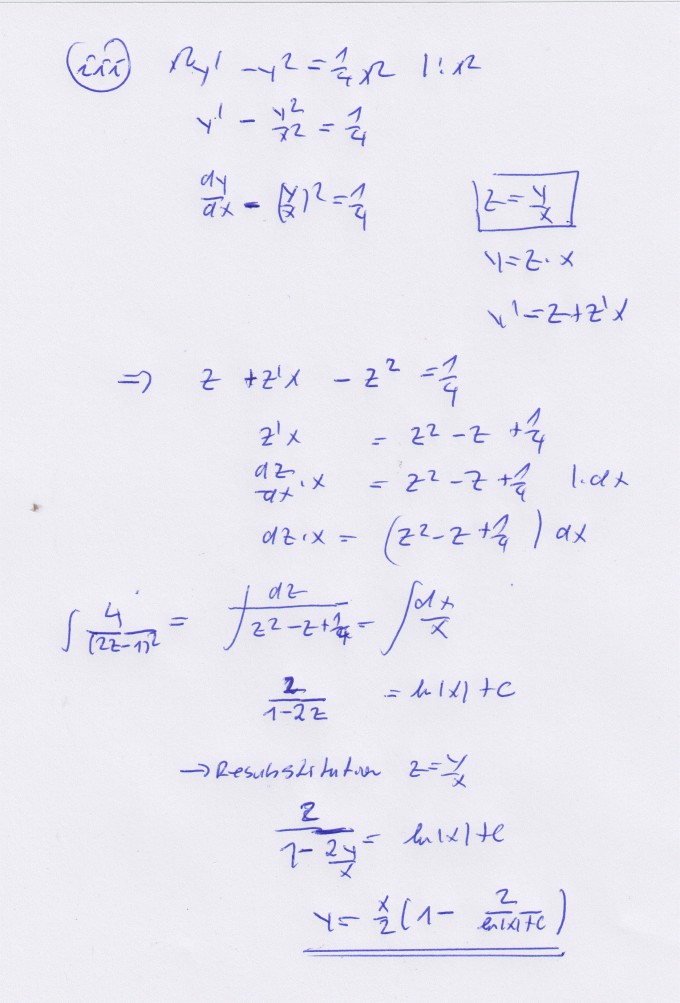 iii x²y' - y² = 1/4 x² |:x²
y' - y²/x² = 1/4
dy/dx - (y/x)² = 1/4
z = y/x
y = z·x
y' = z + z'x
⇒ z + z'x - z² = 1/4
z'x = z² - z + 1/4
dz/dx · x = z² - z + 1/4 |·dx
dz·x = (z² - z + 1/4) dx
∫ 4/(2z-1)² = ∫ dz/(z² - z + 1/4) = ∫ dx/x
2/(1-2z) = ln|x| + c
→ Resubstitution z = y/x
2/(1 - 2y/x) = ln|x| + c
y = x/2 (1 - 2/(ln|x| + c))